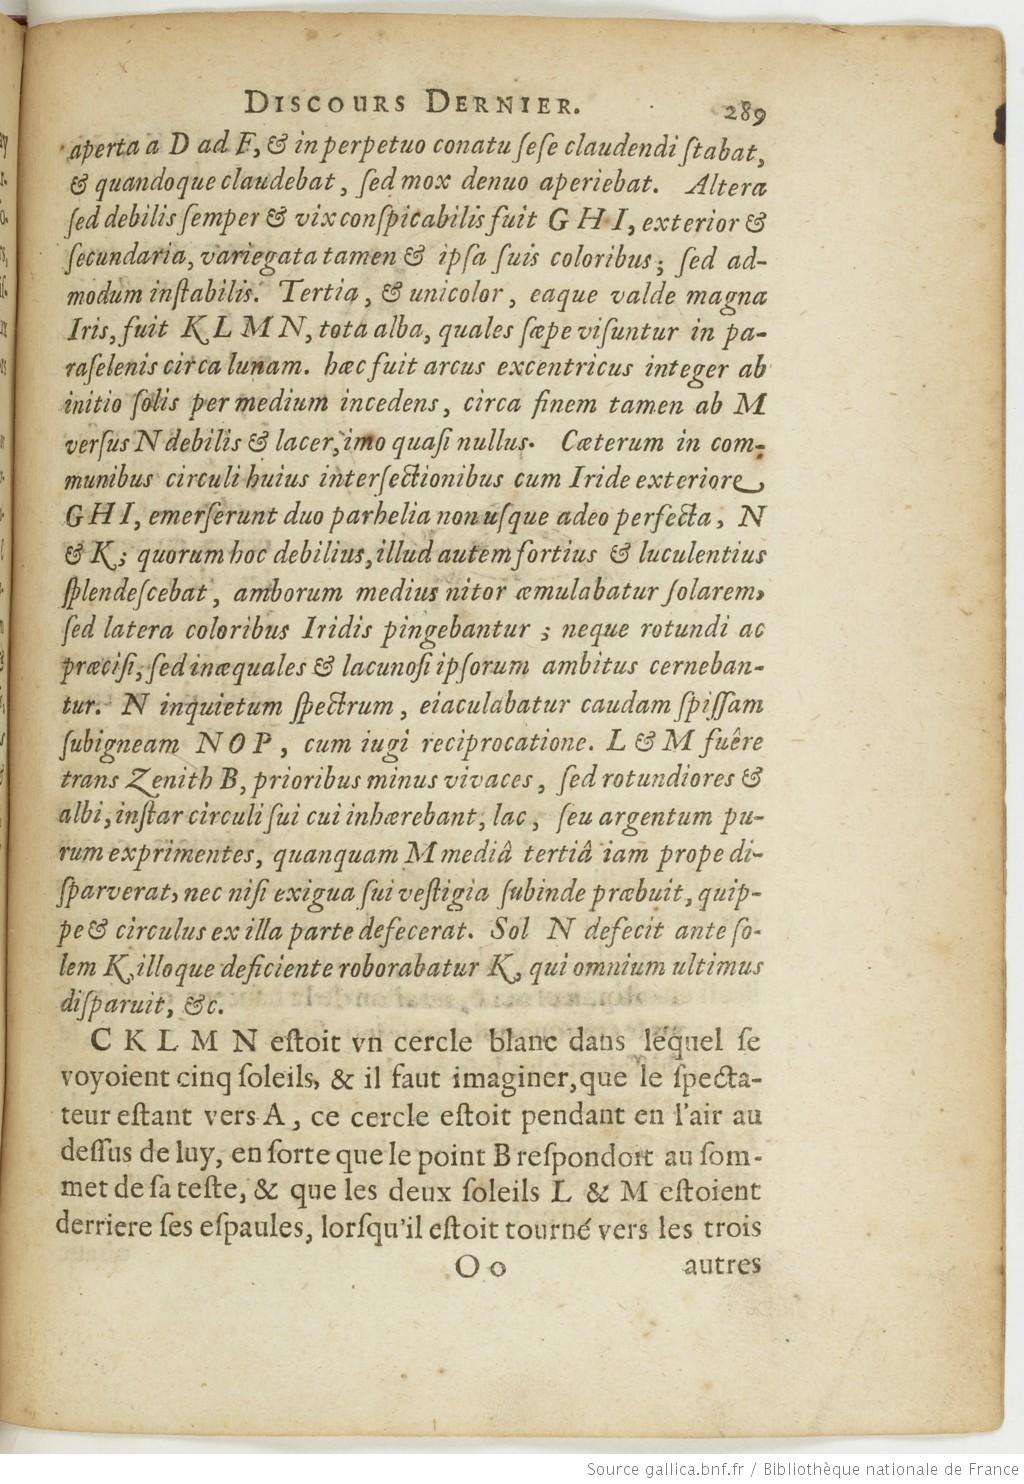 DISCOURS DERNIER. 289
aperta a D ad F, & in perpetuo conatu ſeſe claudendi ſtabat,
& quandoque claudebat, ſed mox denuo aperiebat. Altera
ſed debilis ſemper & vix conſpicabilis fuit G H I, exterior &
ſecundaria, variegata tamen & ipſa ſuis coloribus; ſed ad-
modum inſtabilis. Tertia, & unicolor, eaque valde magna
Iris, fuit K L M N, tota alba, quales ſæpe viſuntur in pa-
raſelenis circa lunam. hæc fuit arcus excentricus integer ab
initio ſolis per medium incedens, circa finem tamen ab M
verſus N debilis & lacer, imo quaſi nullus. Cæterum in com-
munibus circuli huius interſectionibus cum Iride exteriore
G H I, emerſerunt duo parhelia non uſque adeo perfecta, N
& K; quorum hoc debilius, illud autem fortius & luculentius
ſplendeſcebat, amborum medius nitor æmulabatur ſolarem,
ſed latera coloribus Iridis pingebantur; neque rotundi ac
præciſi, ſed inæquales & lacunoſi ipſorum ambitus cerneban-
tur. N inquietum ſpectrum, eiaculabatur caudam ſpiſſam
ſubigneam N O P, cum iugi reciprocatione. L & M fuêre
trans Zenith B, prioribus minus vivaces, ſed rotundiores &
albi, inſtar circuli ſui cui inhærebant, lac, ſeu argentum pu-
rum exprimentes, quanquam M mediâ tertiâ iam prope di-
ſparverat, nec niſi exigua ſui veſtigia ſubinde præbuit, quip-
pe & circulus ex illa parte defecerat. Sol N defecit ante ſo-
lem K, illoque deficiente roborabatur K, qui omnium ultimus
diſparuit, &c.
C K L M N eſtoit vn cercle blanc dans lequel ſe
voyoient cinq ſoleils, & il faut imaginer, que le ſpecta-
teur eſtant vers A, ce cercle eſtoit pendant en l'air au
deſſus de luy, en ſorte que le point B reſpondoit au ſom-
met de ſa teſte, & que les deux ſoleils L & M eſtoient
derriere ſes eſpaules, lorſqu'il eſtoit tourné vers les trois
O o autres
Source gallica.bnf.fr / Bibliothèque nationale de France